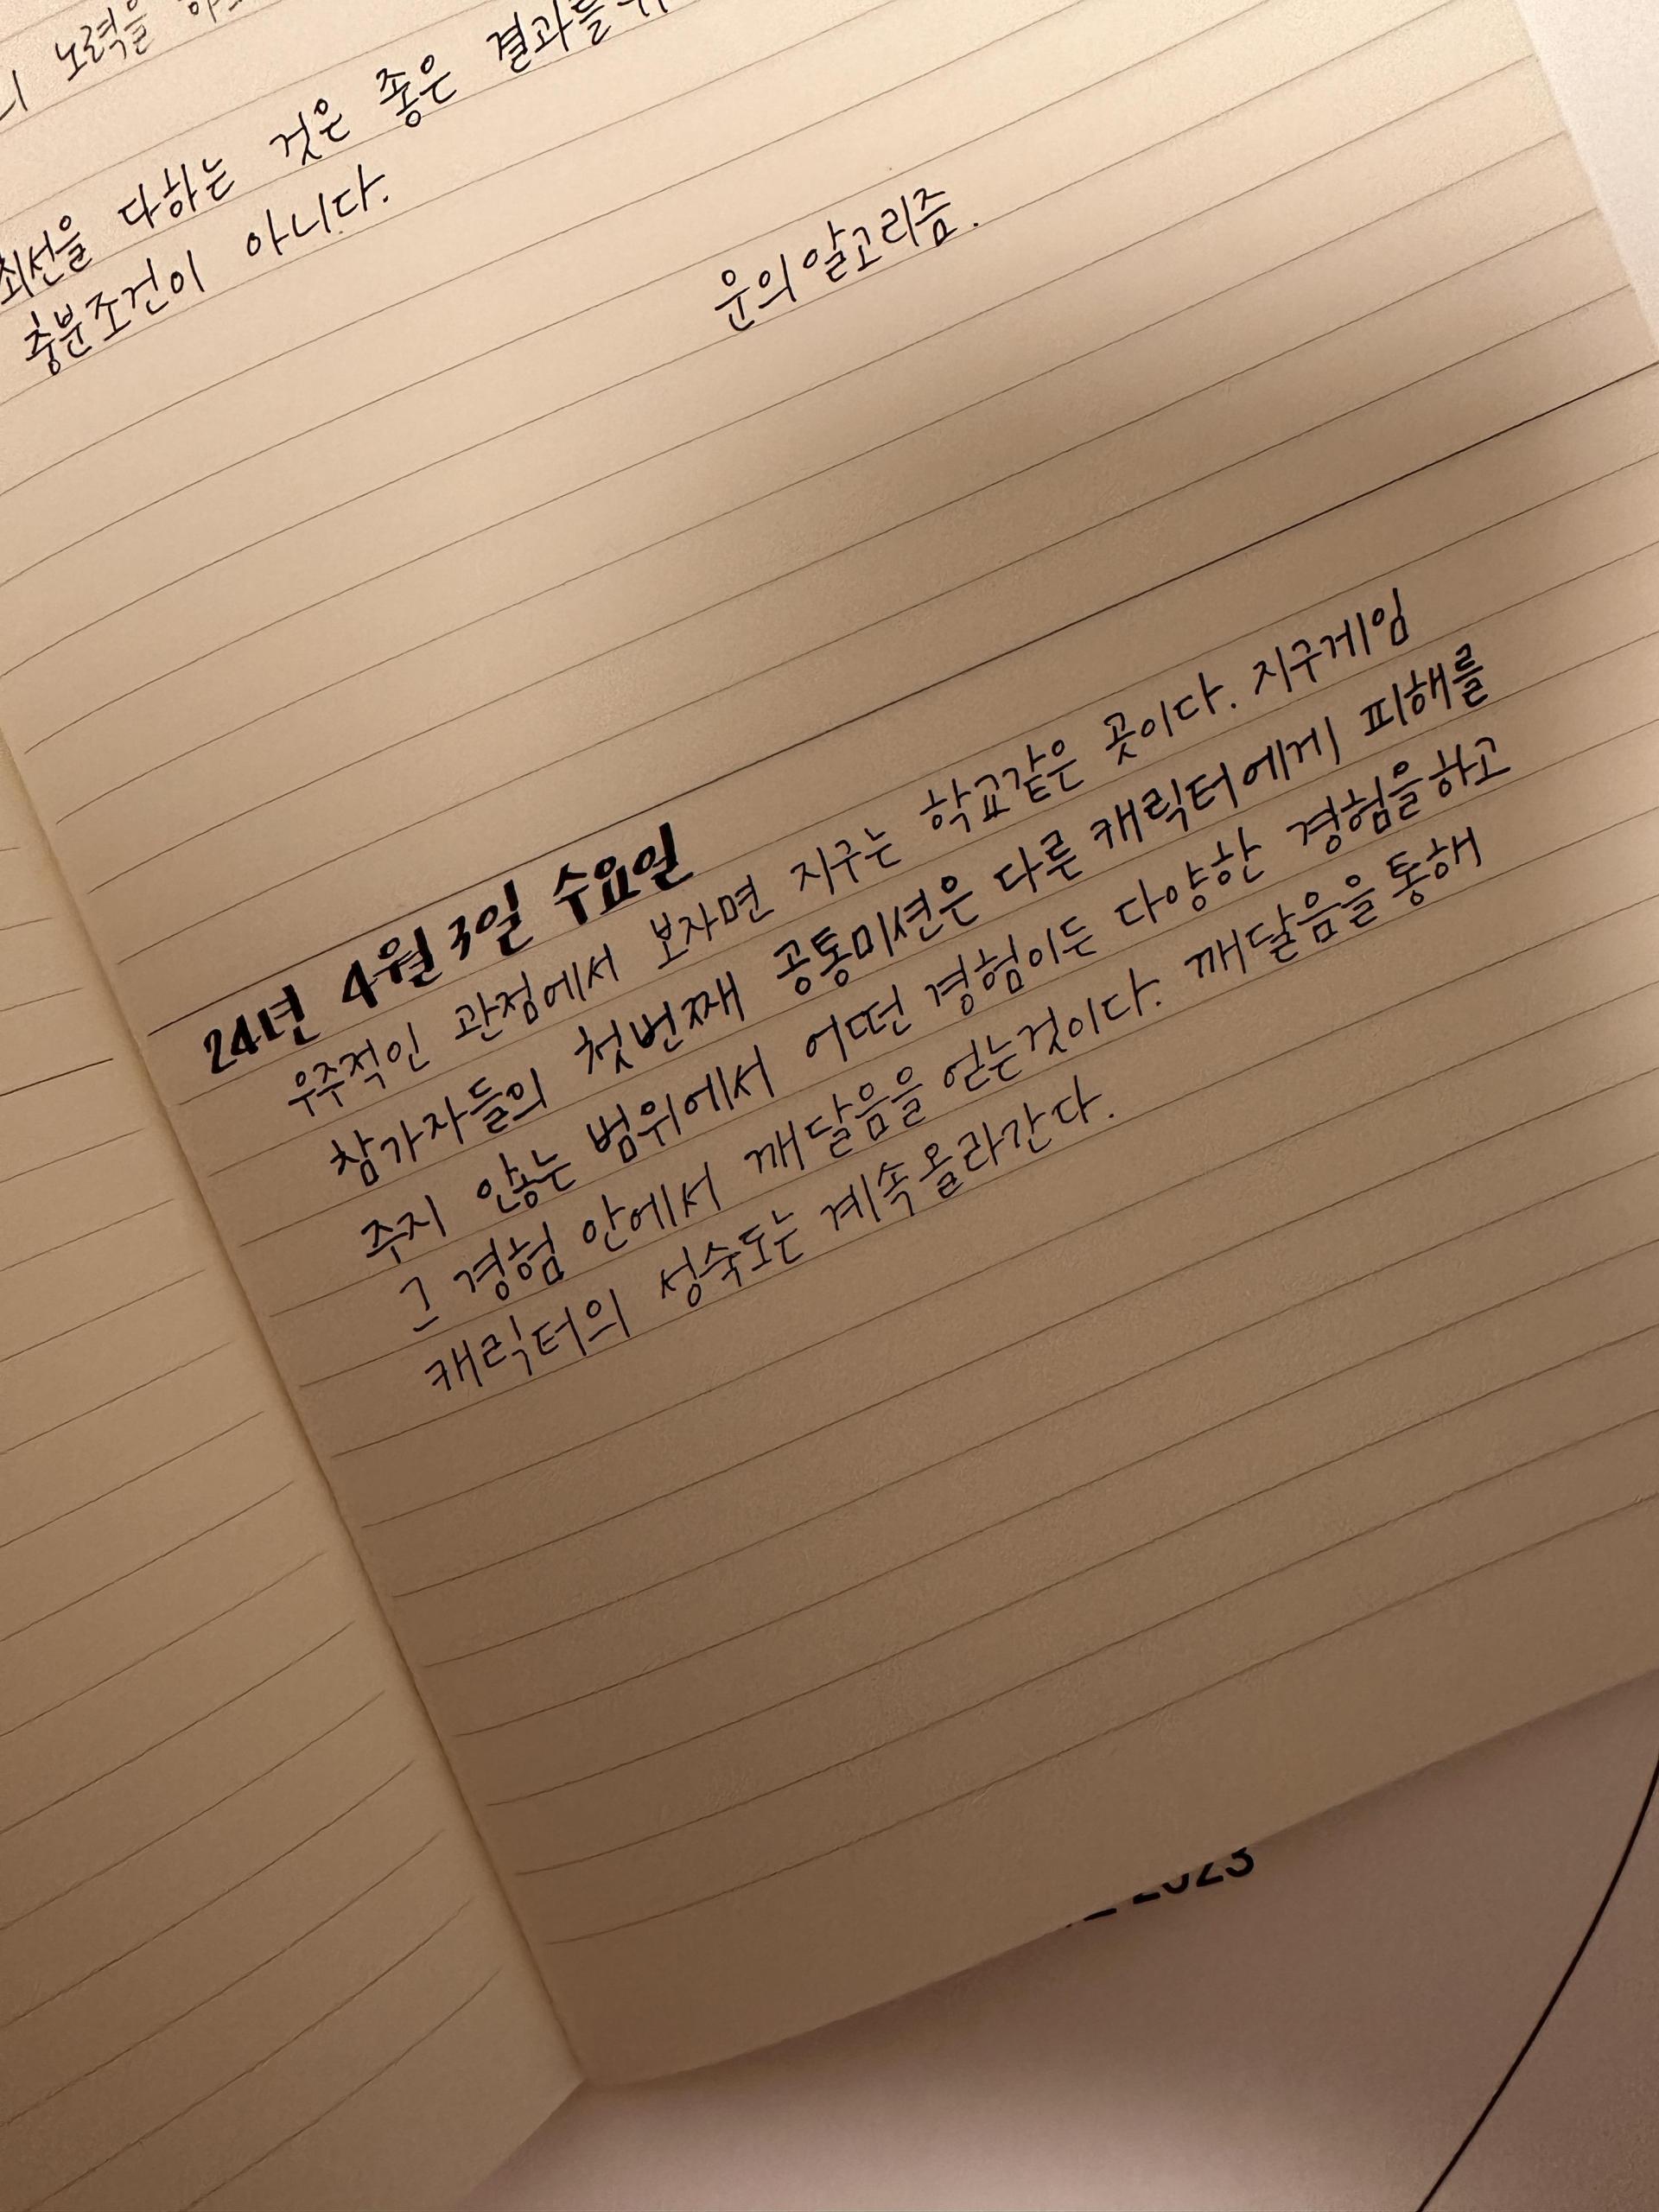 노력을
최선을 다하는 것은 좋은 결과를
충분조건이 아니다.
운의 알고리즘.
24년 4월 3일 수요일
우주적인 관점에서 보자면 지구는 학교같은 곳이다. 지구게임
참가자들의 첫번째 공통미션은 다른 캐릭터에게 피해를
주지 않는 범위에서 어떤 경험이든 다양한 경험을하고
그 경험 안에서 깨달음을 얻는것이다. 깨달음을 통해
캐릭터의 성숙도는 계속올라간다.
2023